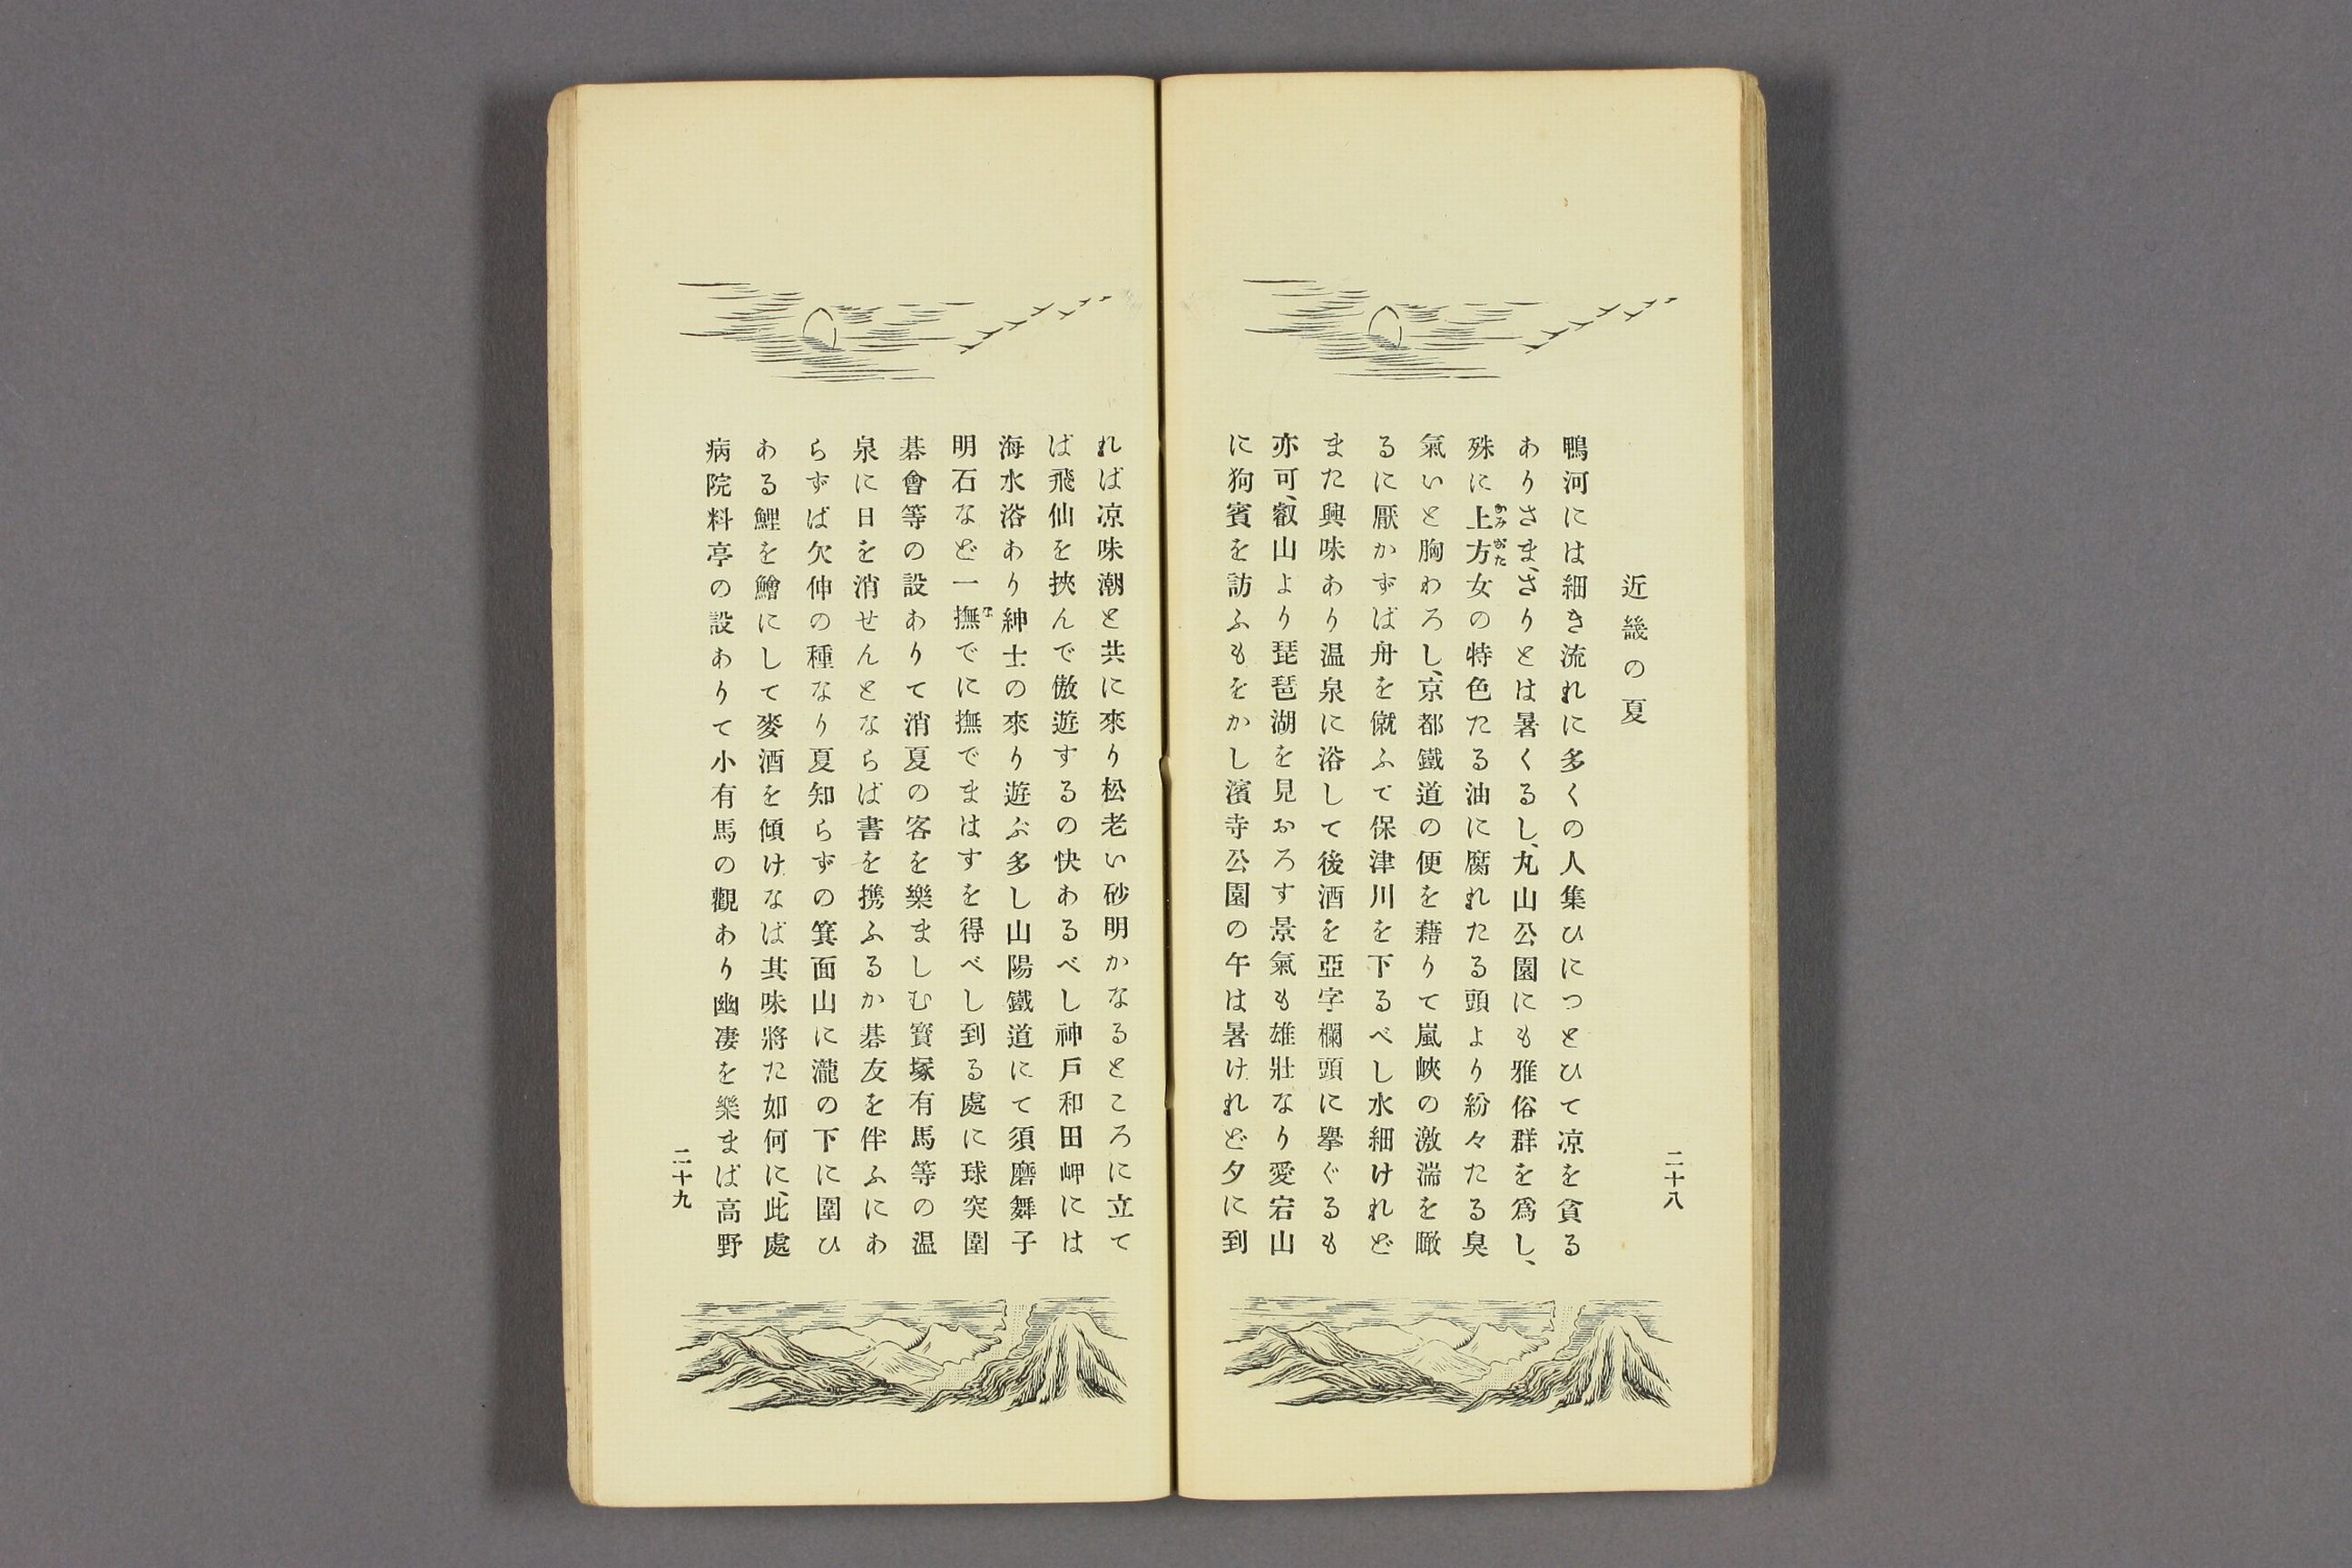 二十八
近畿の夏
鴨河には細き流れに多くの人集ひにつとひて凉を貪る
ありさま、さりとは暑くるし、丸山公園にも雅俗群を爲し、
殊に上方女の特色たる油に腐れたる頭より紛々たる臭
かみがた
氣いと胸わろし、京都鐵道の便を藉りて嵐峽の激湍を瞰
るに厭かずば舟を僦ふて保津川を下るべし水細けれど
また興味あり温泉に浴して後酒を亞字欄頭に擧ぐるも
亦可、叡山より琵琶湖を見おろす景氣も雄壯なり愛宕山
に狗賓を訪ふもをかし濱寺公園の午は暑けれど夕に到
れば凉味潮と共に來り松老い砂明かなるところに立て
ば飛仙を挾んで傲遊するの快あるべし神戶和田岬には
海水浴あり紳士の來り遊ぶ多し山陽鐵道にて須磨舞子
明石など一撫でに撫でまはすを得べし到る處に球突圍
な
碁會等の設ありて消夏の客を樂ましむ寳塚有馬等の温
泉に日を消せんとならば書を携ふるか碁友を伴ふにあ
らずば欠伸の種なり夏知らずの箕面山に瀧の下に圍ひ
ある鯉を鱠にして麥酒を傾けなば其味將た如何に、此處
病院料亭の設ありて小有馬の觀あり幽凄を樂まば高野
二十九